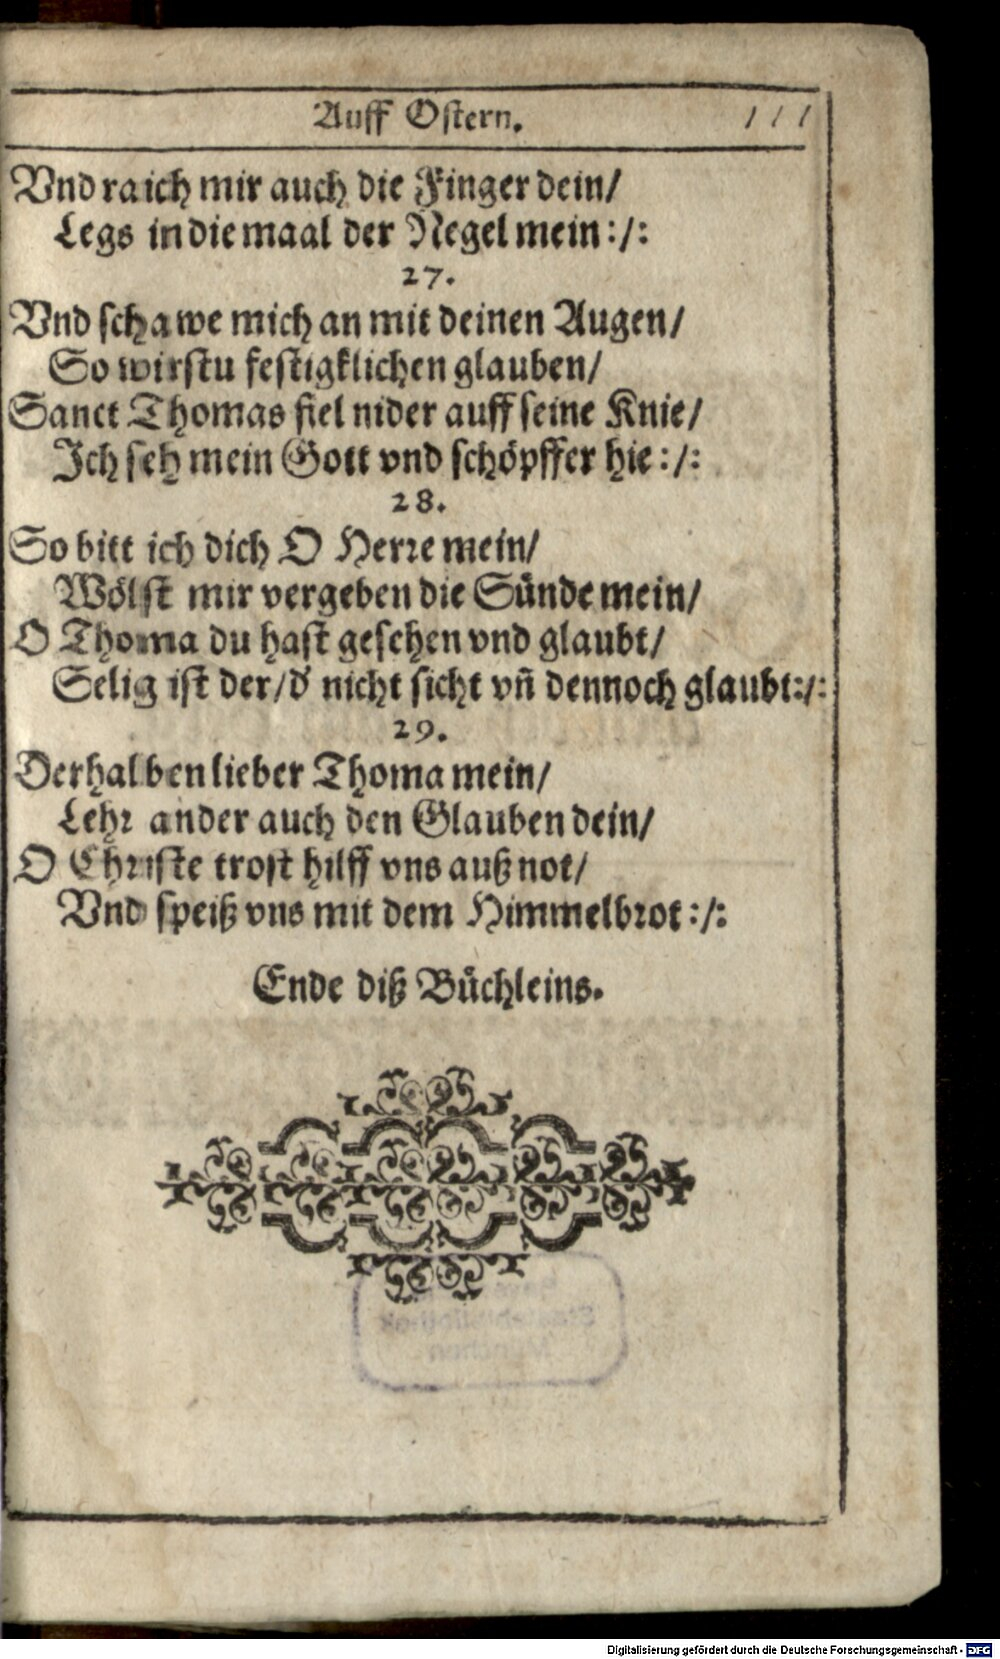 Auff Ostern. 111
Vnd raich mir auch die Finger dein/
Legs in die maal der Negel mein:/:
27.
Vnd schawe mich an mit deinen Augen/
So wirstu festigklichen glauben/
Sanct Thomas fiel nider auff seine Knie/
Ich seh mein Gott vnd schöpffer hie:/:
28.
So bitt ich dich O Herre mein/
Wölst mir vergeben die Sünde mein/
O Thoma du hast gesehen vnd glaubt/
Selig ist der/d' nicht sicht vñ dennoch glaubt:/:
29.
Derhalben lieber Thoma mein/
Lehr ander auch den Glauben dein/
O Christe trost hilff vns auß not/
Vnd speiß vns mit dem Himmelbrot:/:
Ende diß Büchleins.
Digitalisierung gefördert durch die Deutsche Forschungsgemeinschaft - DFG